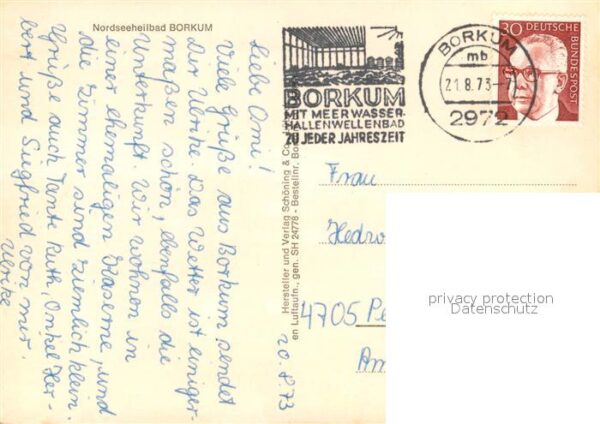 Nordseeheilbad BORKUM
Liebe Omi!
Viele Grüße aus Borkum sendet
Dir Ulrike. Das Wetter ist einiger-
maßen schön, ebenfalls die
Unterkunft. Wir wohnen in
einer ehemaligen Kaserne, und
die Zimmer sind ziemlich klein.
Grüße auch Tante Ruth, Onkel Her-
bert und Siegfried von mir.
Ulrike
20.8.73
Hersteller und Verlag Schöning & Co
en Luftaufn., gen. SH 24778 - Bestellnr. Bo
BORKUM
MIT MEERWASSER-
HALLENWELLENBAD
ZU JEDER JAHRESZEIT
BORKUM
mb
21.8.73-7
2972
30 DEUTSCHE
BUNDESPOST
Frau
Hedw
4705 Pe
Am
privacy protection
Datenschutz